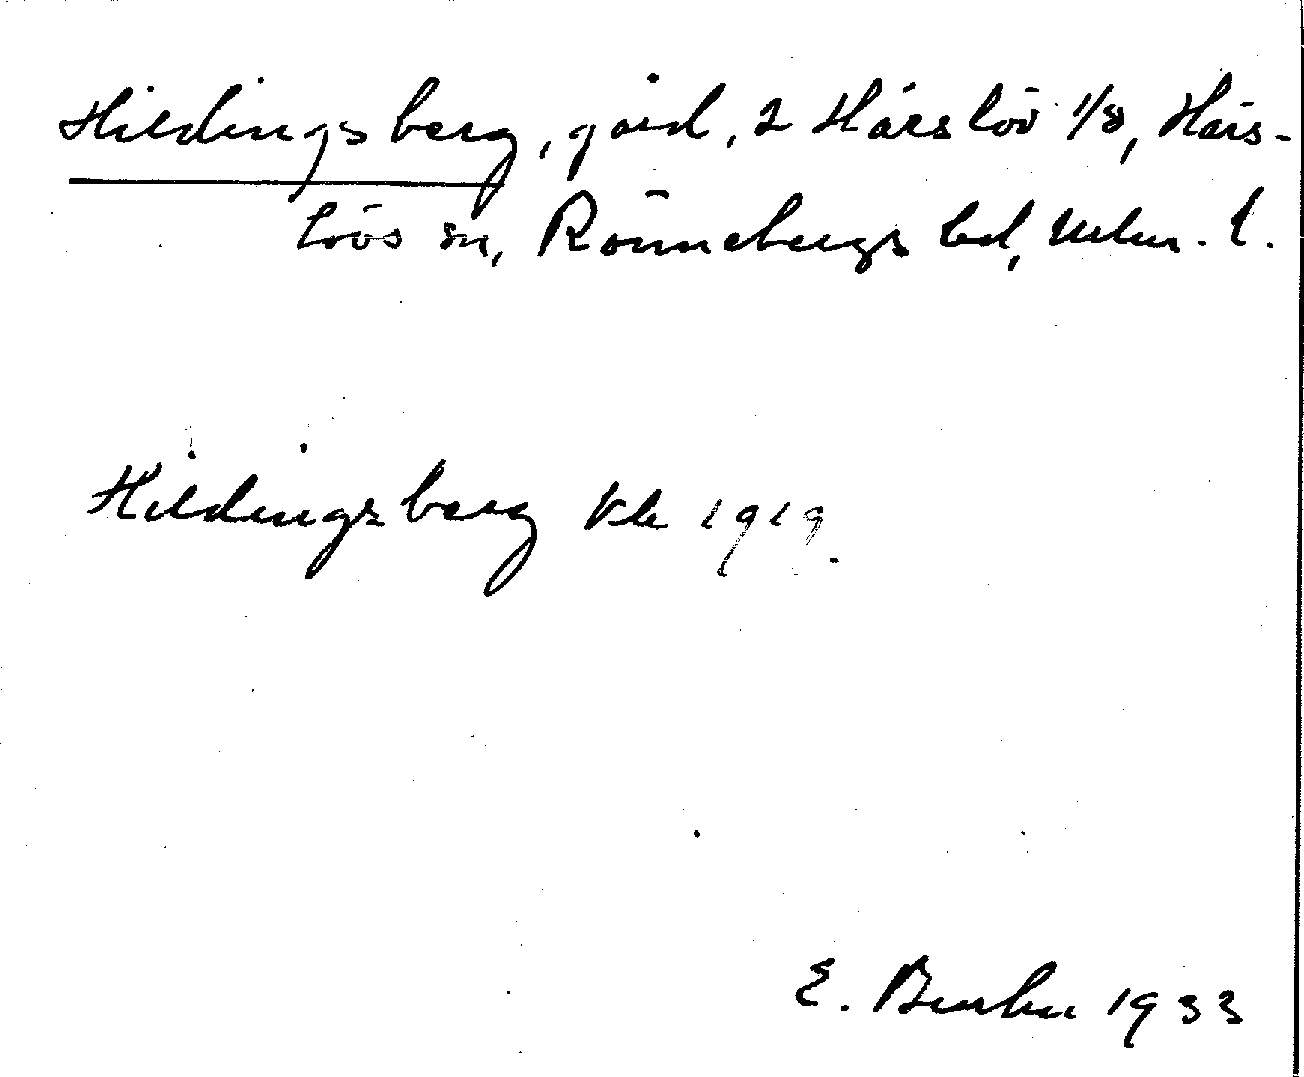 Hildingsberg, gård, 2 Härslöv 1/8, Härs-
lövs sn, Rönnebergs hd, Malm. l.
Hildingsberg Vk 1919.
E. 1933